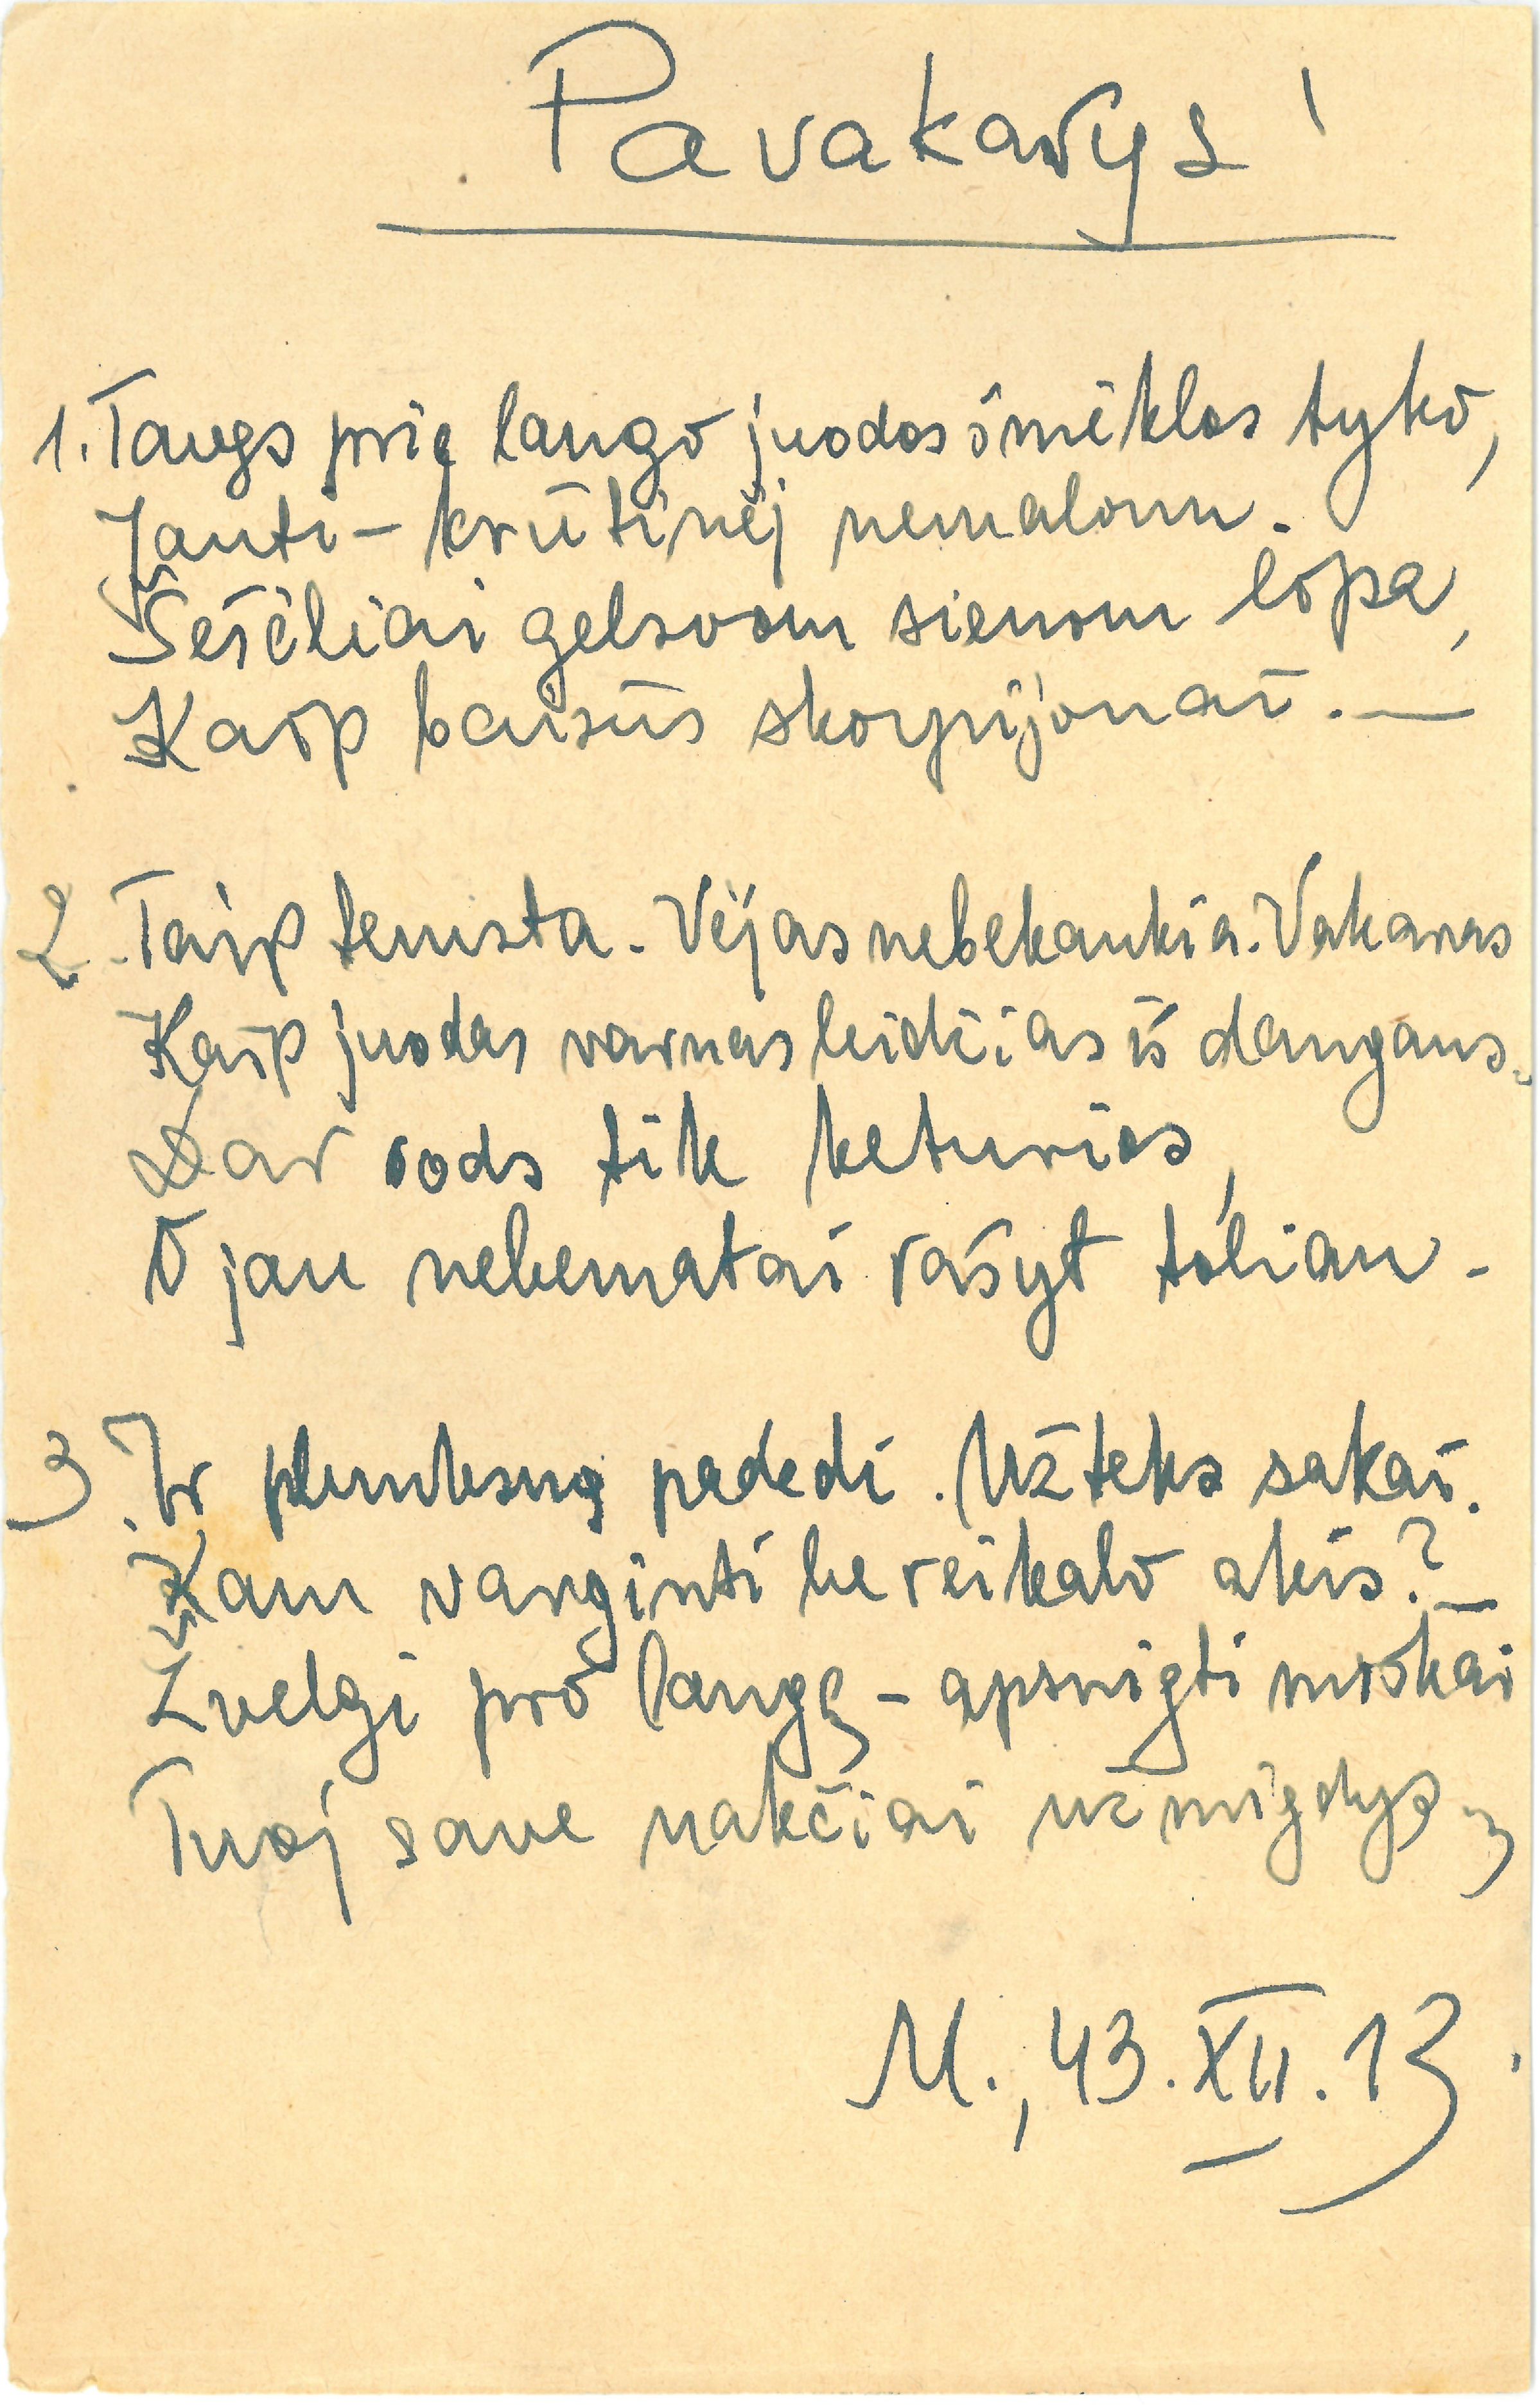 Pavakarys
1. Tavęs prie lango juodos šmėklos tyko,
Jauti – krūtinėj nemalonu.
Šešėliai gelsvom sienom lipa,
Kaip baisūs skorpijonai. —
2. Taip temsta. Vėjas nebekaukia. Vakaras
Kaip juodas varnas leidžias iš dangaus.
Dar vods tik keturios,
O jau nebematai rašyt toliau.
3. Ir plunksną padedi. Užteks sakai.
Kam varginti be reikalo akis? —
Žvelgi pro langą – apsnigti miškai
Tuoj save nakčiai užmigdys
M., 43. XII. 13.